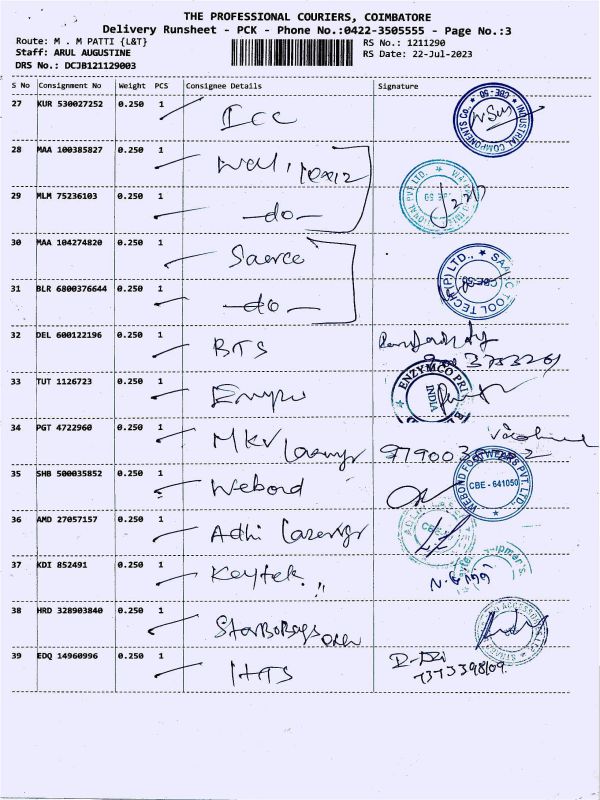 THE PROFESSIONAL COURIERS, COIMBATORE
Delivery Runsheet - PCK - Phone No.:0422-3505555 - Page No.:3
Route: M . M PATTI {L&T}
Staff: ARUL AUGUSTINE
DRS No.: DCJB121129003
RS No.: 1211290
RS Date: 22-Jul-2023
S No Consignment No Weight PCS Consignee Details Signature
27 KUR 530027252 0.250 1 ICC
INDUSTRIAL COMPONENTS Co., CBE-50
28 MAA 100385827 0.250 1
29 MLM 75236103 0.250 1 -do-
30 MAA 104274820 0.250 1 Saerce
31 BLR 6800376644 0.250 1 -do-
TOOL TECH (P) LTD.,
32 DEL 600122196 0.250 1 BTS
33 TUT 1126723 0.250 1
ENZYMCO INDIA
34 PGT 4722960 0.250 1 MKV
35 SHB 500035852 0.250 1 Webord
WEBOND FOOTWEARS PVT. LTD., CBE - 641050
36 AMD 27057157 0.250 1 Adhi
37 KDI 852491 0.250 1 Keytek
38 HRD 328903840 0.250 1
39 EDQ 14960996 0.250 1 HTS
7373398109